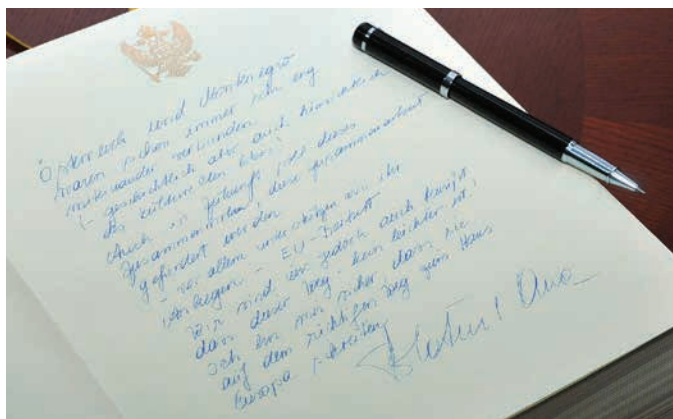 Österreich und Montenegro
waren schon immer sehr eng
miteinander verbunden
(- geschichtlich aber auch hinsichtlich
des kulturellen
Auch in Zukunft soll dieses
diese Zusammenarbeit
gefördert werden
- vor allem unterstützen wir ihr
Anliegen - EU-Beitritt
Wir sind uns jedoch auch bewußt
dass dieser Weg kein leichter ist,
ich bin mir sicher, dass sie
auf dem richtigen Weg zum Haus
Europa